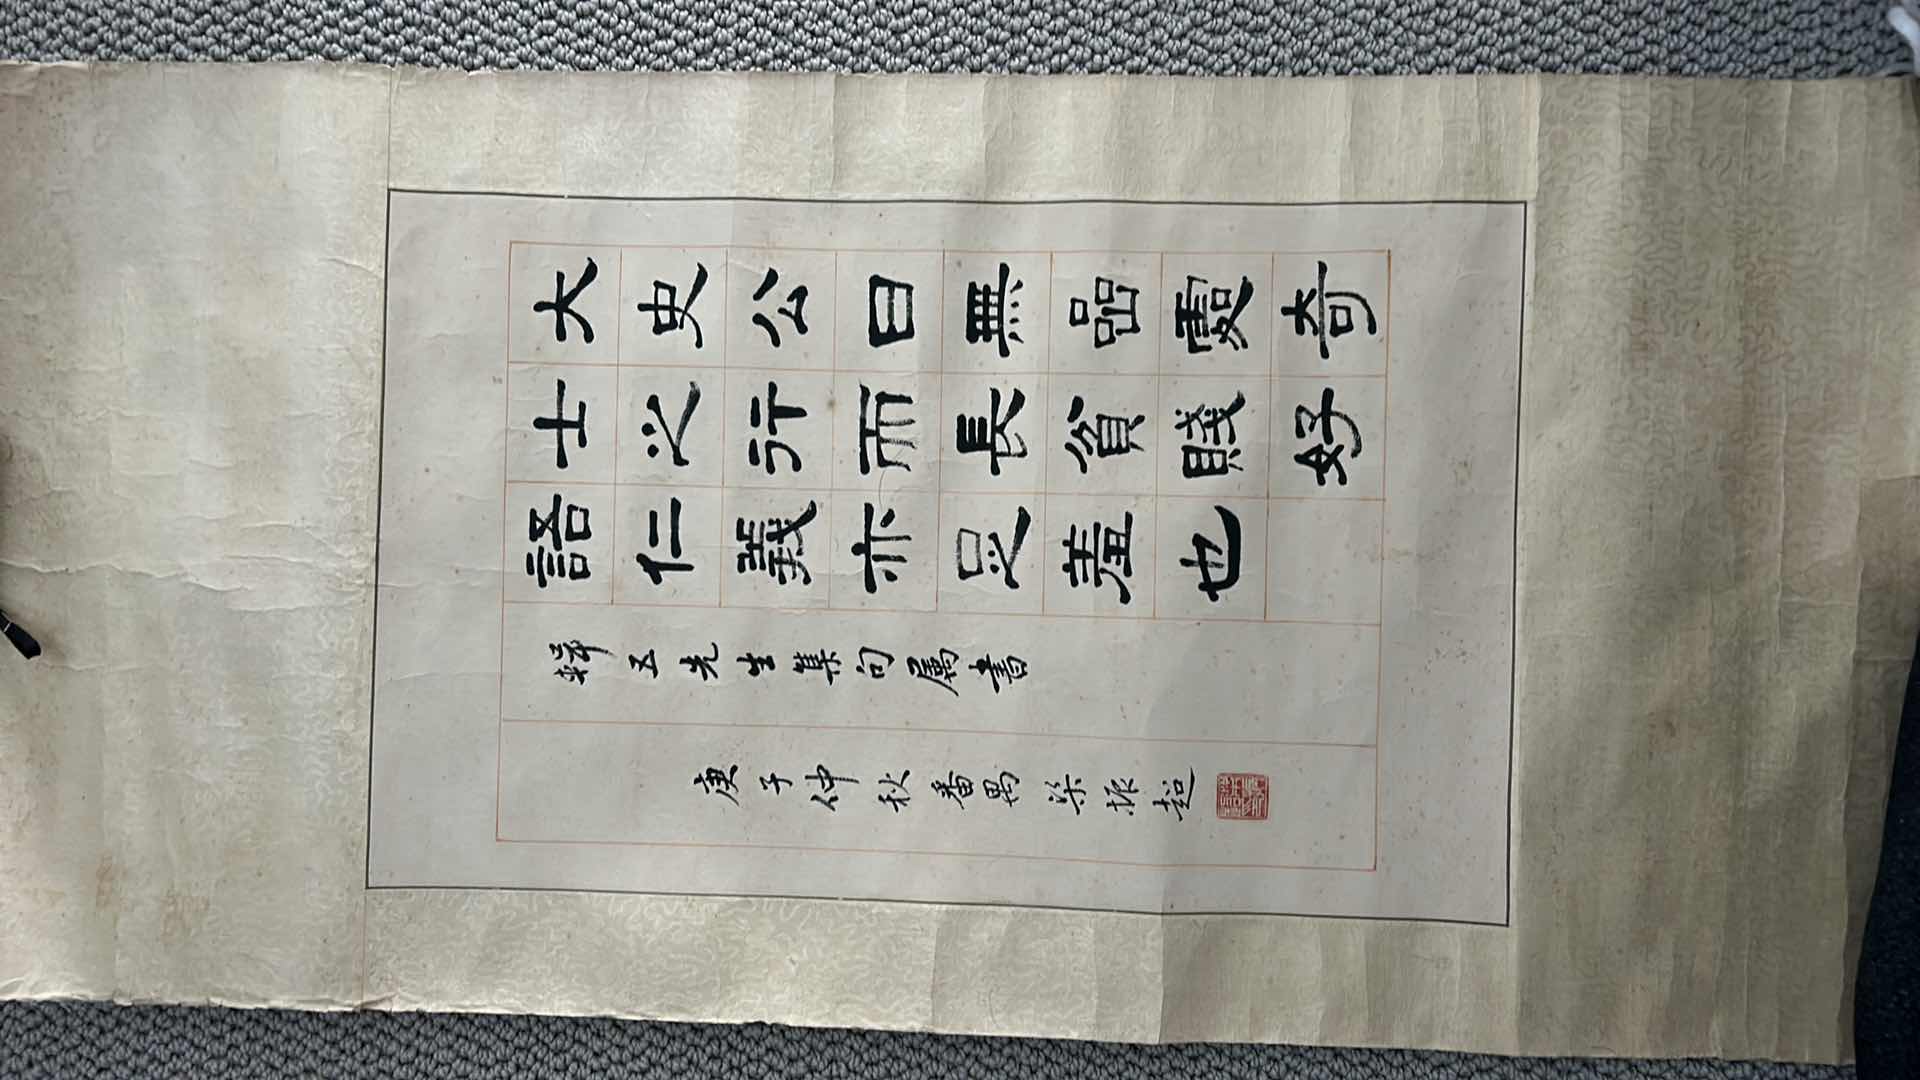 大史公曰無嵒處奇
士之行而長貧賤好
語仁義亦足羞也
輯五先生集句属書
庚子仲秋番禺梁振超